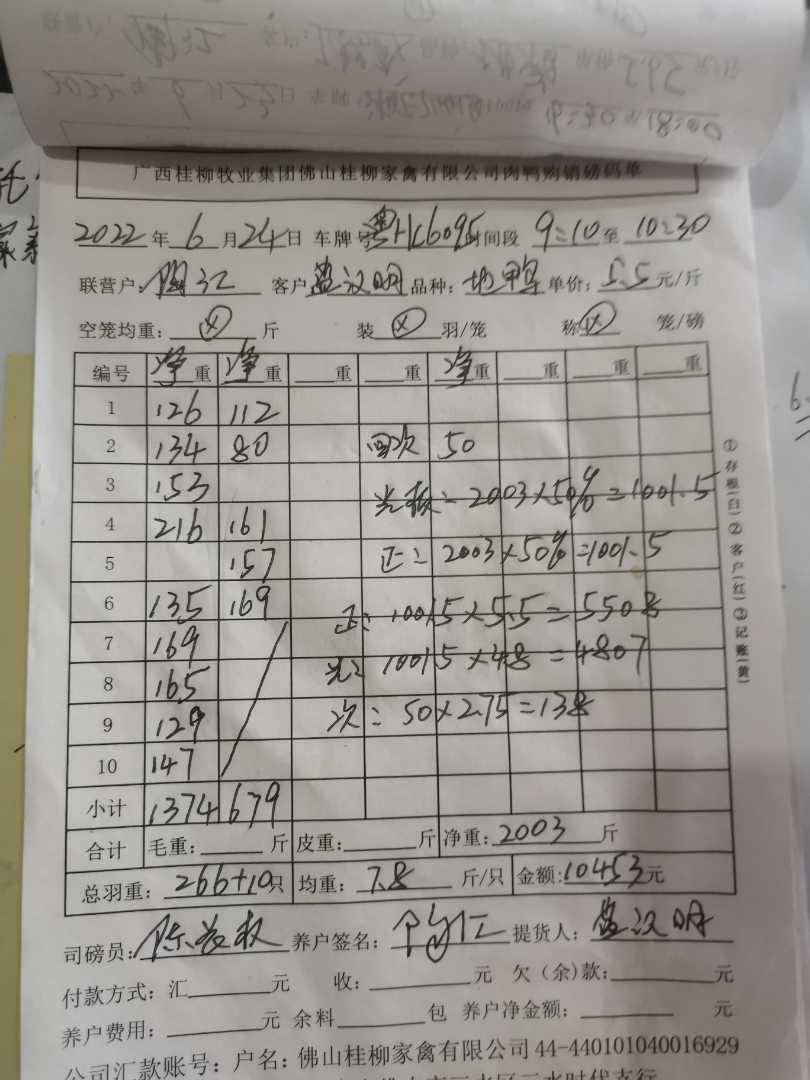 广西桂柳牧业集团佛山桂柳家禽有限公司肉鸭购销磅码单
2022年6月24日 车牌号粤HK6095时间段 9:10至10:30
联营户: 陶江 客户 盘汉明 品种: 单价: 5.5元/斤
空笼均重: 斤 装 羽/笼 称 笼/磅
编号 净重 净重 重 重 净重 重 重 重
1 126 112
2 134 80 回次 50
3 153 2003×50%=1001.5
4 216 161
5 157 正: 2003×50%=1001.5
6 135 169 正: 1001.5×5.5=5508
7 169
8 165 1001.5×4.8=4807
9 129 次: 50×2.75=138
10 147
小计 1374 679
合计 毛重: 斤 皮重: 斤 净重: 2003 斤
总羽重: 266+10只 均重: 7.8 斤/只 金额: 10453元
司磅员: 养户签名: 提货人: 盘汉明
付款方式: 汇 元 收: 元 欠(余)款: 元
养户费用: 元 余料 包 养户净金额: 元
公司汇款账号: 户名: 佛山桂柳家禽有限公司 44-440101040016929
①存根(白)②客户(红)③记账(黄)